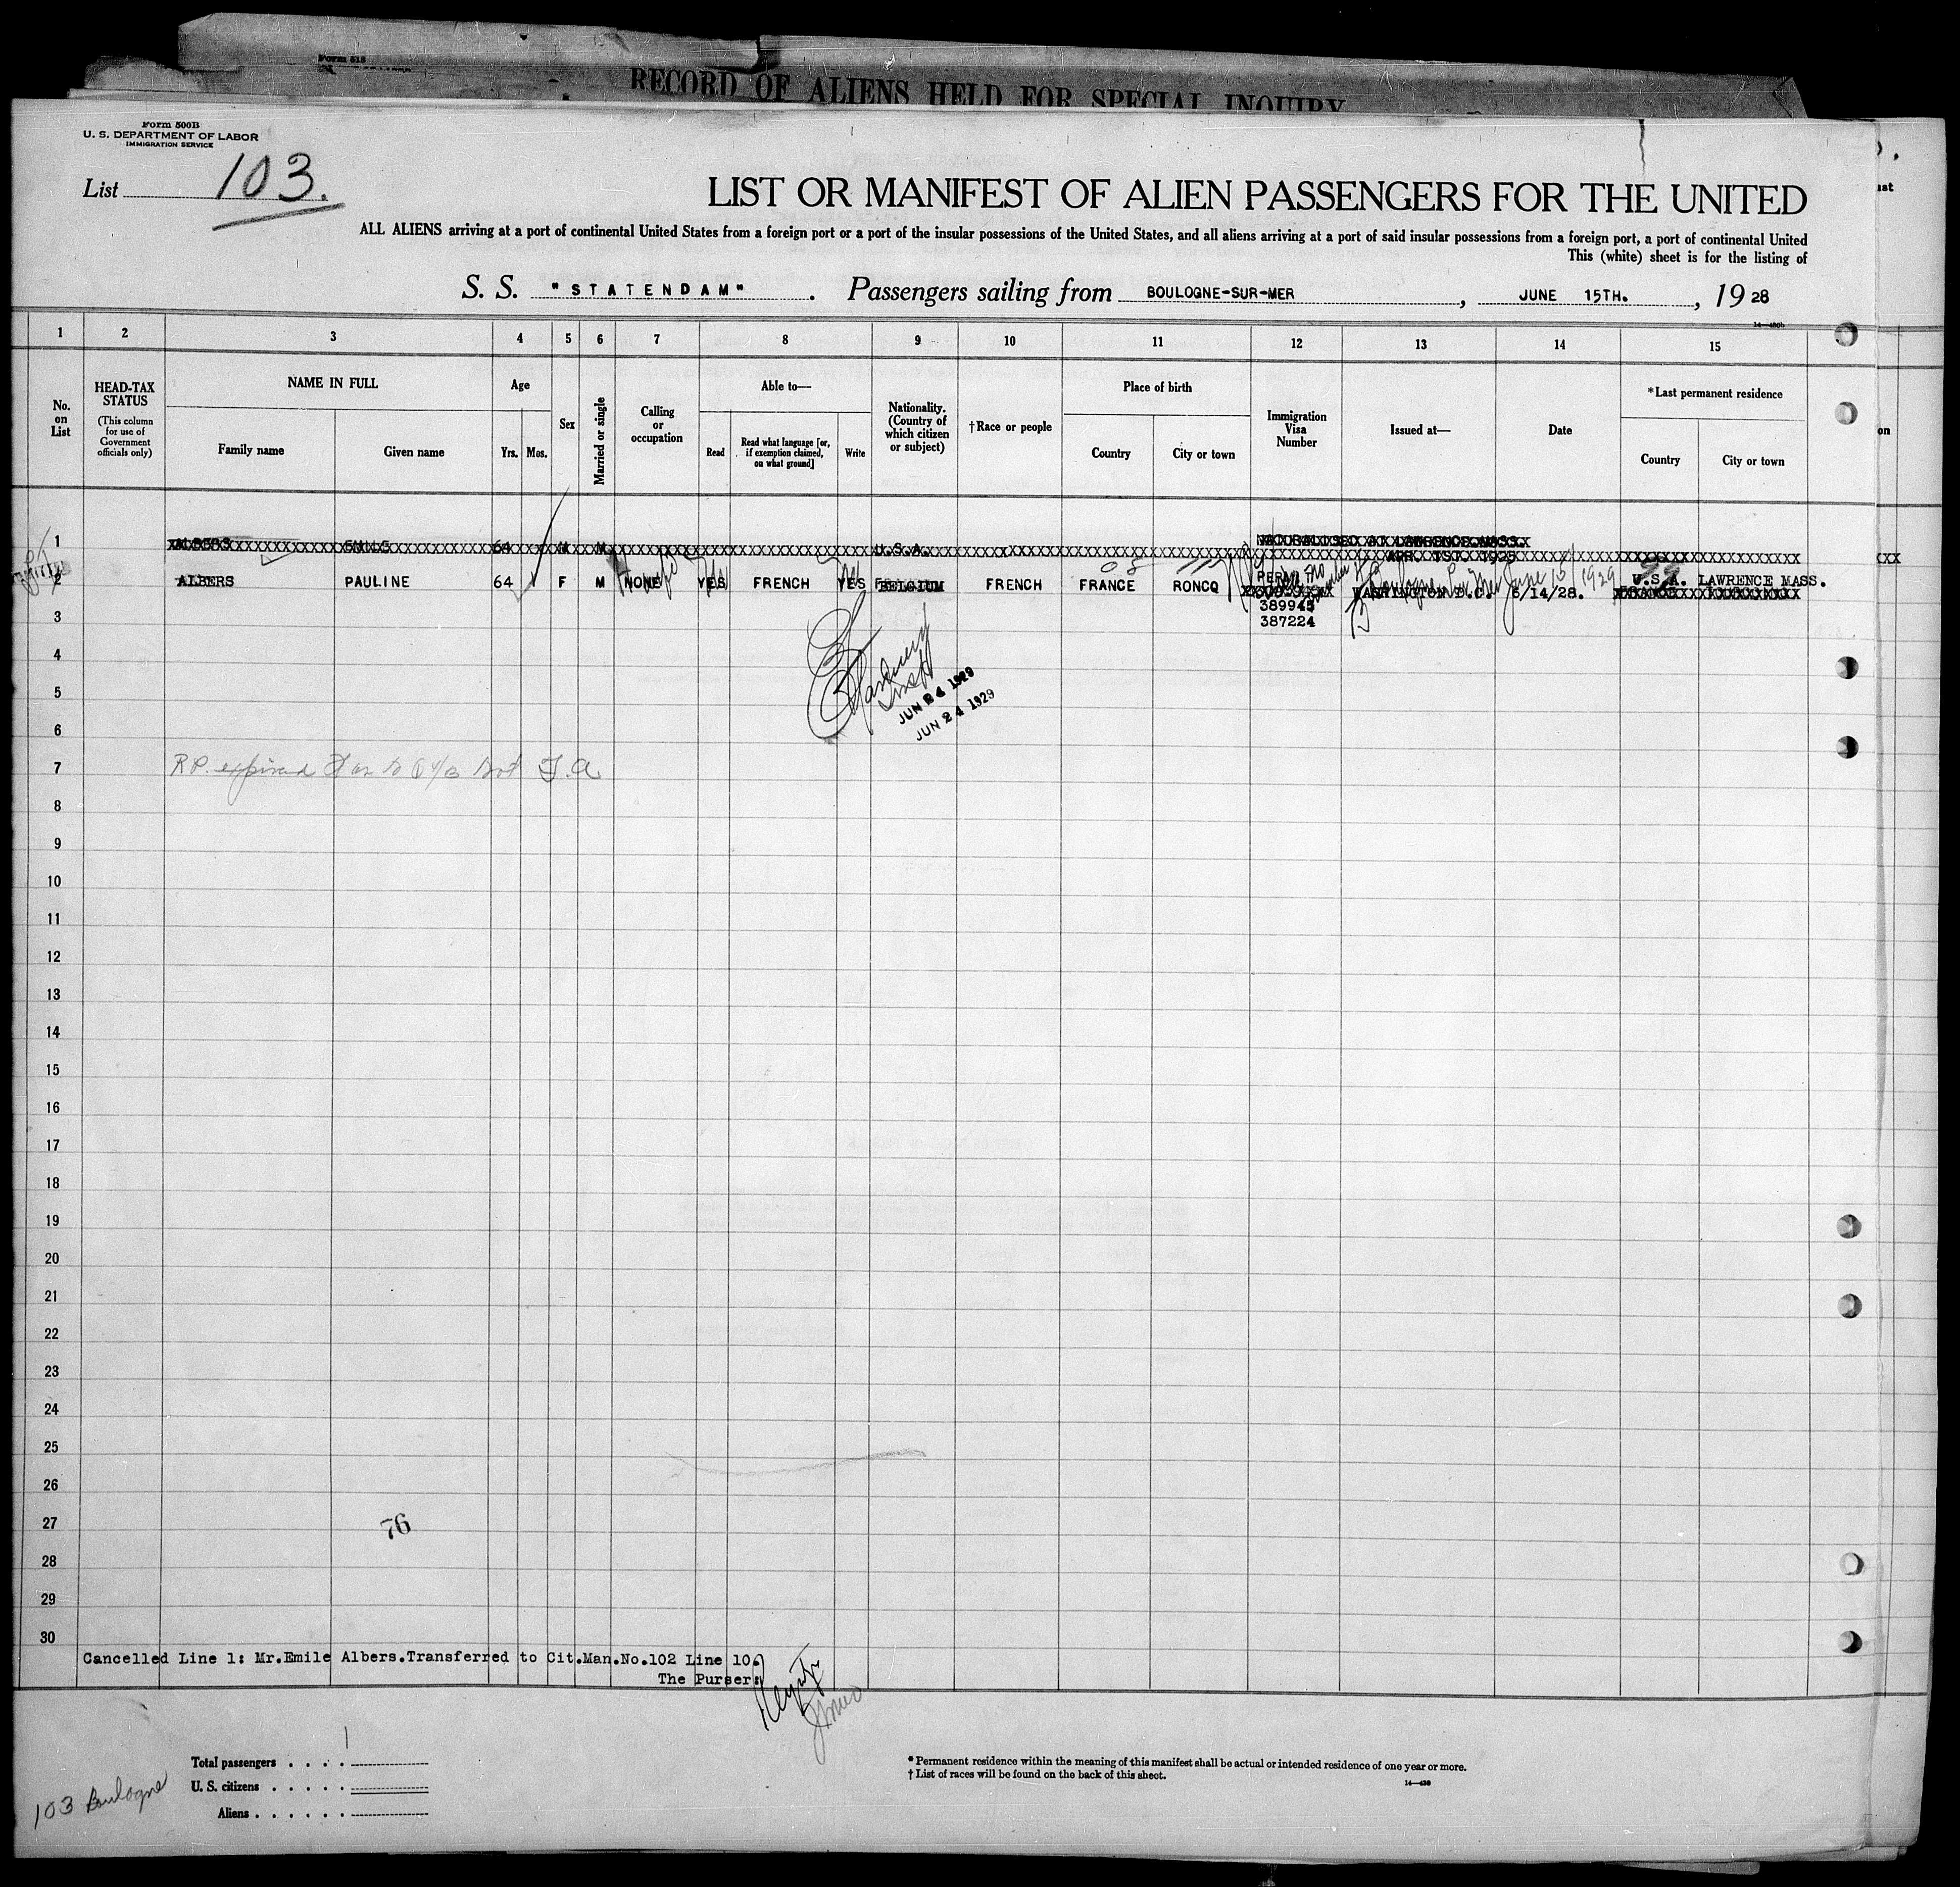 Form 515
RECORD OF ALIENS HELD FOR SPECIAL INQUIRY
Form 500B
U. S. DEPARTMENT OF LABOR
IMMIGRATION SERVICE
List 103.
LIST OR MANIFEST OF ALIEN PASSENGERS FOR THE UNITED
ALL ALIENS arriving at a port of continental United States from a foreign port or a port of the insular possessions of the United States, and all aliens arriving at a port of said insular possessions from a foreign port, a port of continental United
This (white) sheet is for the listing of
S. S. "STATENDAM". Passengers sailing from BOULOGNE-SUR-MER, JUNE 15TH., 1928
1 2 3 4 5 6 7 8 9 10 11 12 13 14 15
No. on List
HEAD-TAX STATUS (This column for use of Government officials only)
NAME IN FULL
Family name Given name
Age
Yrs. Mos.
Sex
Married or single
Calling or occupation
Able to—
Read Read what language [or, if exemption claimed, on what ground] Write
Nationality. (Country of which citizen or subject)
†Race or people
Place of birth
Country City or town
Immigration Visa Number
Issued at—
Date
*Last permanent residence
Country City or town
1 ALBERS EMILE 64 M M U.S.A. NATURALISED AT LAWRENCE MASS.
APR. 1ST. 1925
2 ALBERS PAULINE 64 F M NONE YES FRENCH YES BELGIUM FRENCH FRANCE RONCQ PERMIT WASHINGTON D.C. 6/14/28. U.S.A. LAWRENCE MASS.
Boulogne Sur Mer June 15/1929
389945
387224
3
4
5
6
JUN 24 1929
JUN 24 1929
7 R.P. expired
8
9
10
11
12
13
14
15
16
17
18
19
20
21
22
23
24
25
26
27 76
28
29
30
Cancelled Line 1: Mr.Emile Albers.Transferred to Cit.Man.No.102 Line 10.
The Purser:
Total passengers . . . . 1
U. S. citizens . . . . .
Aliens . . . . . .
103 Boulogne
* Permanent residence within the meaning of this manifest shall be actual or intended residence of one year or more.
† List of races will be found on the back of this sheet.
14—430